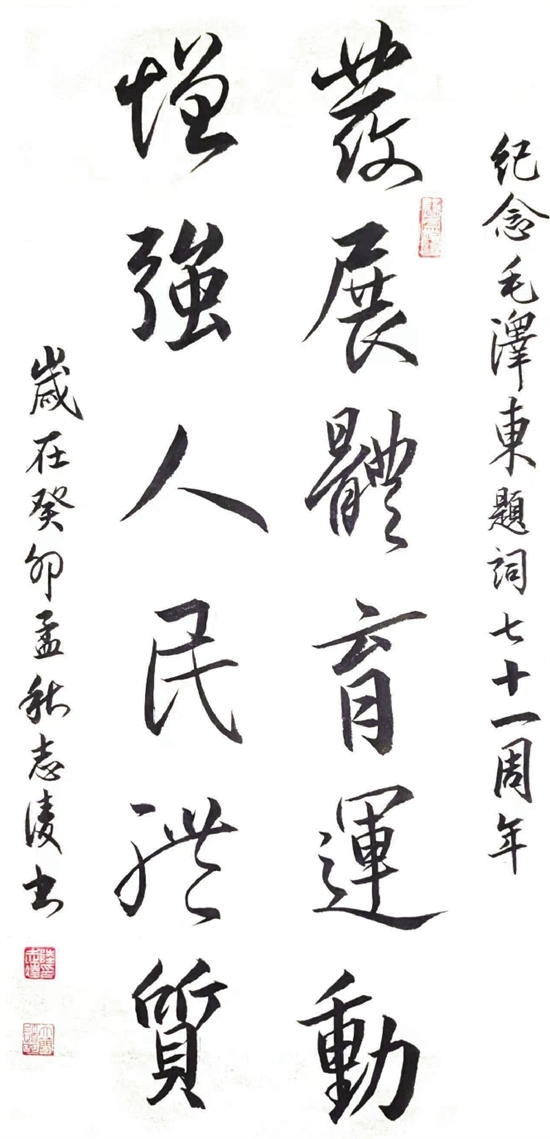 紀念毛澤東題詞七十一周年
發展體育運動
增強人民體質
歲在癸卯孟秋志凌書